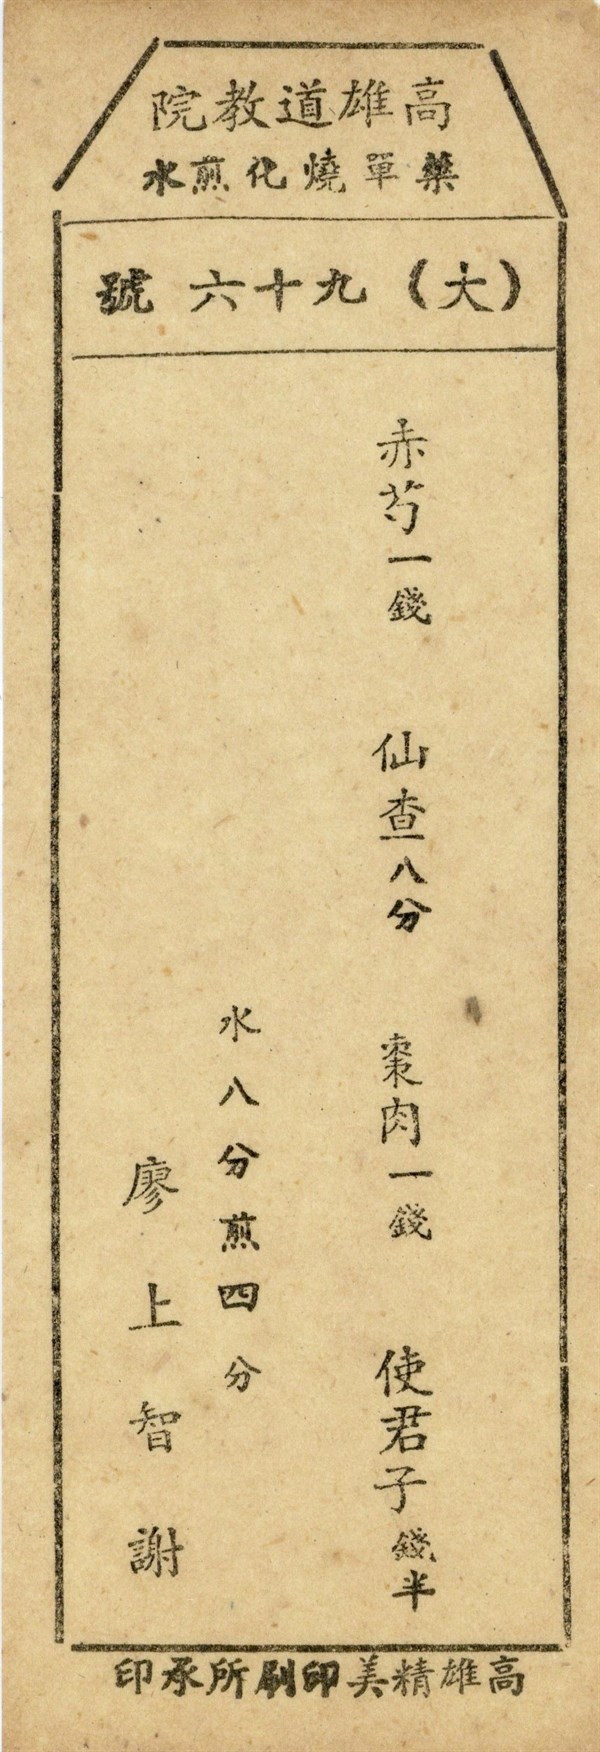 高雄道教院
藥單燒化煎水
（大）九十六號
赤芍一錢　仙查八分　棗肉一錢　使君子錢半
水八分煎四分
廖上智謝
高雄精美印刷所承印